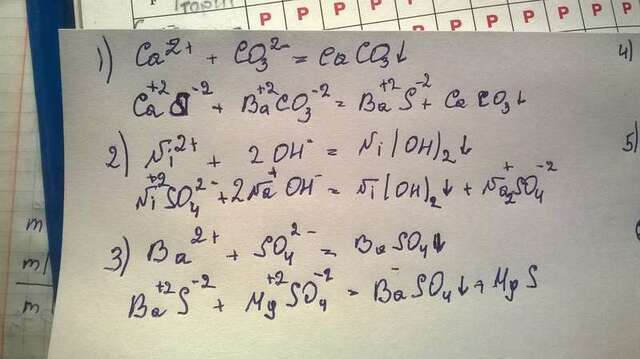 P P P P P P P
P P
1) Ca²⁺ + CO₃²⁻ = CaCO₃↓
Ca⁺²S⁻² + Ba⁺²CO₃⁻² = Ba⁺²S⁻² + CaCO₃↓
2) Ni²⁺ + 2OH⁻ = Ni(OH)₂↓
Ni⁺²SO₄²⁻ + 2Na⁺OH⁻ = Ni(OH)₂↓ + Na₂⁺SO₄⁻²
3) Ba²⁺ + SO₄²⁻ = BaSO₄↓
Ba⁺²S⁻² + Mg⁺²SO₄⁻² = BaSO₄↓ + MgS
4)
5)
m
m
m